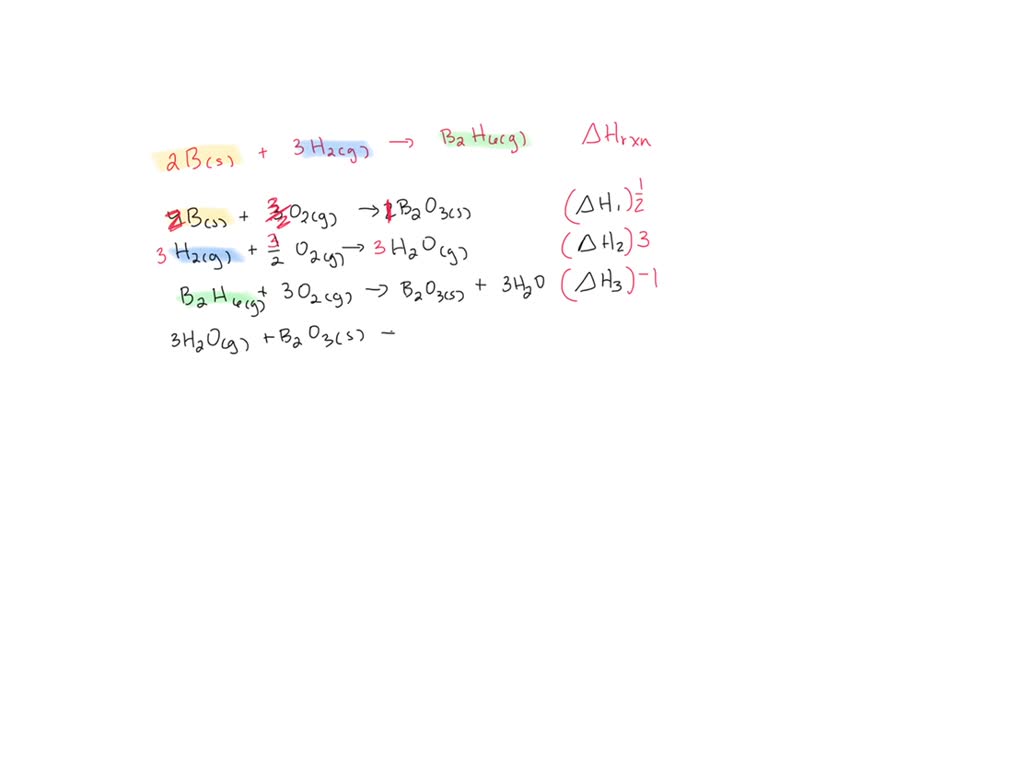 2B(s) + 3H₂(g) → B₂H₆(g) ΔHrxn
2B(s) + 3/2 O₂(g) → 1B₂O₃(s) (ΔH₁)½
3H₂(g) + 3/2 O₂(g) → 3H₂O(g) (ΔH₂)3
B₂H₆(g) + 3O₂(g) → B₂O₃(s) + 3H₂O (ΔH₃)-1
3H₂O(g) + B₂O₃(s) –